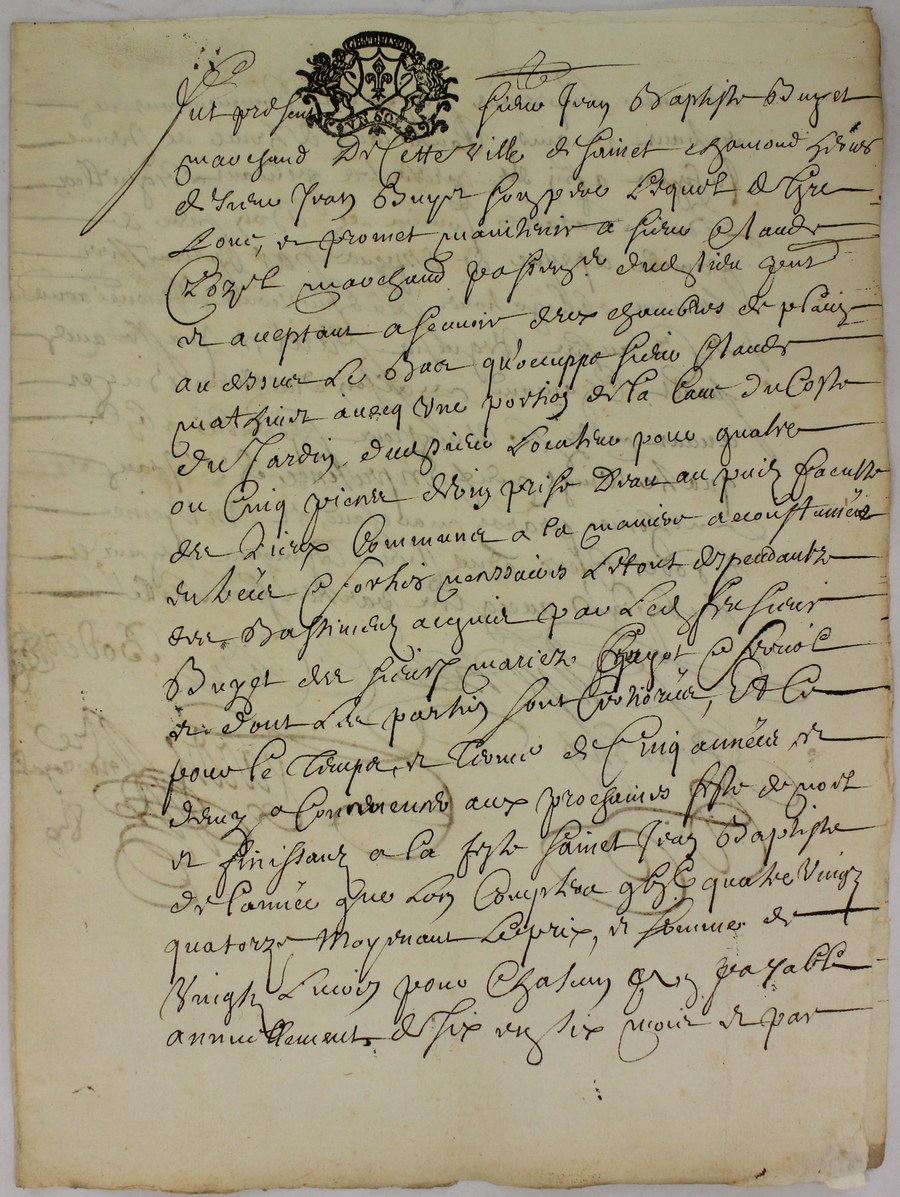 GEN DE LYON
VN SOL
Fut present sieur Jean Baptiste Buyet
marchand De Cette Ville de sainct chamond heritier
de sieur Jean Buyet son pere Lequel de gre
Loue, et promet maintenir a sieur Claude
marchand dudit lieu present
et aceptant a scavoir deux chambres de plain
au dessus Le Bas qu'occuppe sieur Claude
mathieu avecq Une portion de la Cave Du Coste
du Jardin dudit sieur Locateur pour quatre
ou Cinq pieces de vin prise D'eau au puis faculte
des Lieux Communs a la maniere acoustumée
entrées & sorties necessaires Le tout despendants
des Bastiments acquis par Led sieur
Buyet des sieurs mariez &
et dont Les parties sont Certiorées, Et Ce
pour le Temps, et Terme de Cinq années et
demy a Commencer aux prochaines feste de noel
et finissants a la feste sainct Jean Baptiste
de l'année que Lon Comptera quatre Vingt
quatorze Moyenant Le prix, et somme de
Vingt Livres pour Chacun an payable
annuellement de six en six mois et par